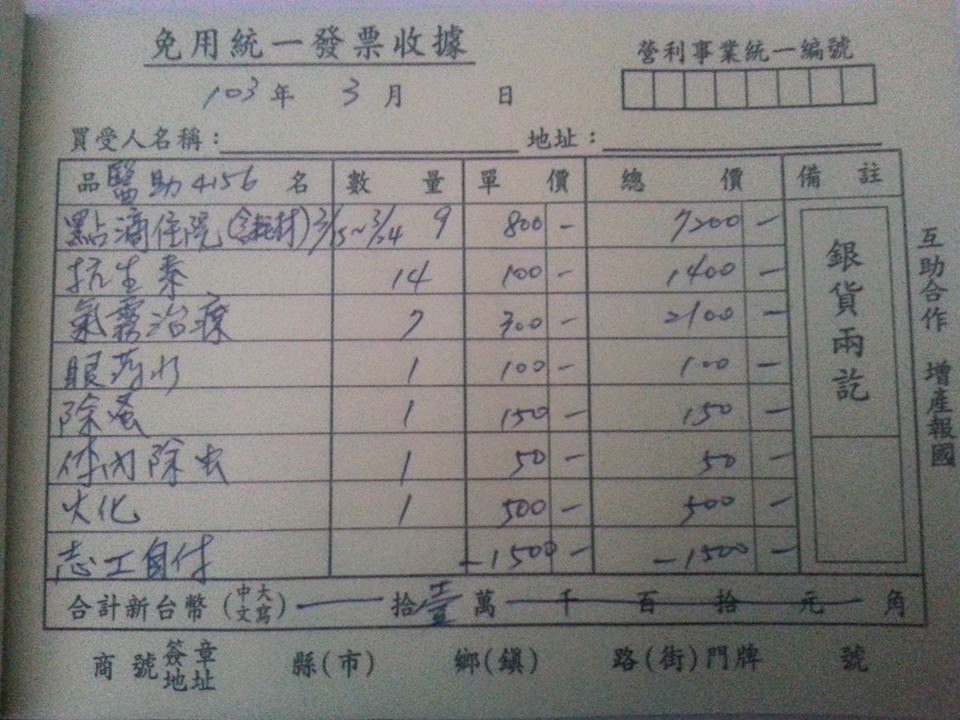 免用統一發票收據
營利事業統一編號
103年 3月 日
買受人名稱： 地址：
品 醫助4156 名 數量 單價 總價 備註
點滴住院(含耗材)3/15~3/24 9 800- 7200-
抗生素 14 100- 1400-
氣霧治療 7 300- 2100-
眼葯水 1 100- 100-
除蚤 1 150- 150-
体內除虫 1 50- 50-
火化 1 500- 500-
志工自付 -1500- -1500-
銀貨兩訖
互助合作 增產報國
合計新台幣(中文大寫) 拾壹萬 千 百 拾 元 角
商號簽章地址 縣(市) 鄉(鎮) 路(街)門牌 號